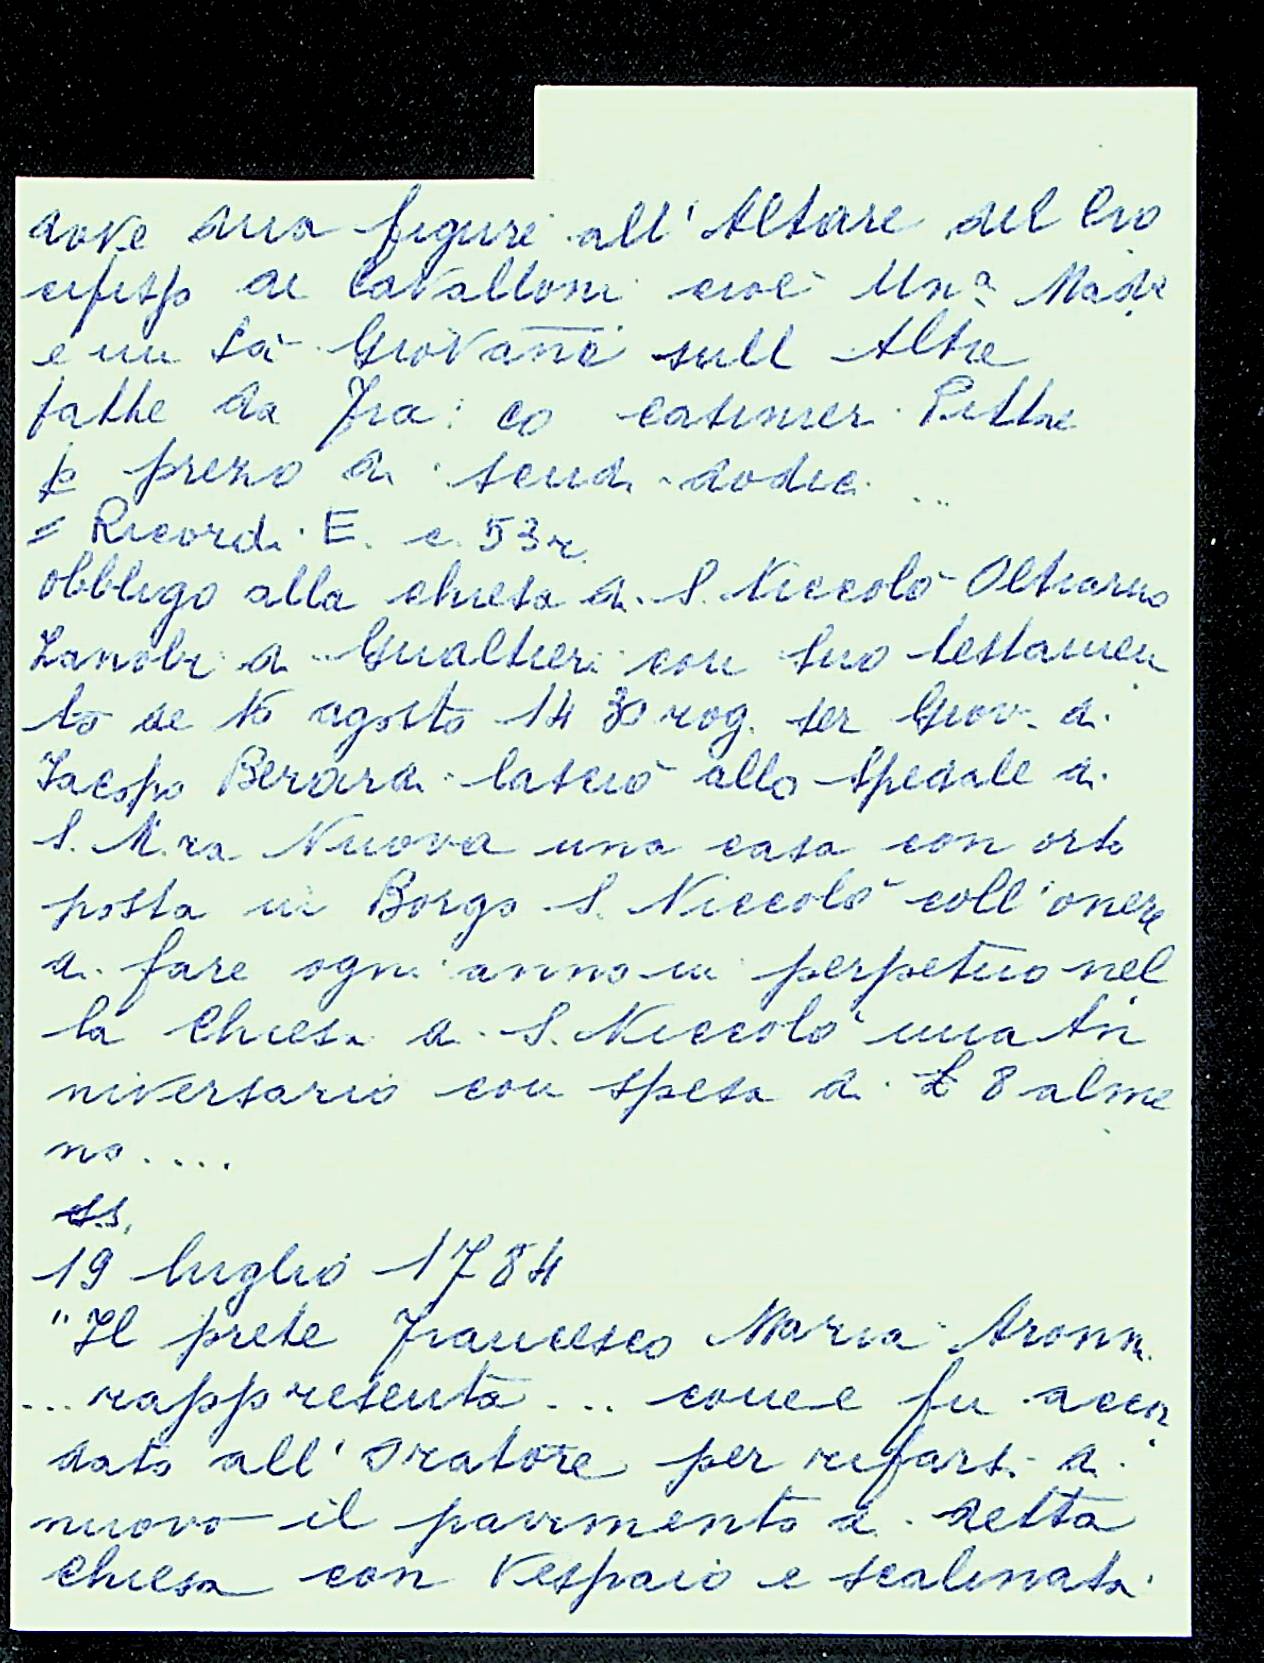 dove dua figure all'Altare del Cro
cifisso de Cavalloni cioè Una Made
e un Sā Giovanñi sull Altre
fatte da Fra: co Pittre
p prezzo di scudi dodici ...
= Ricordi E. c. 53 r.
obbligo alla chiesa di S. Niccolò Oltrarno
Zanobi di Gualtieri con suo testamen
to de 16 agosto 1430 rog. ser Giov. di
Iacopo Berardi lasciò allo spedale di
S. M.ra Nuova una casa con orto
posta in Borgo S. Niccolò coll'onere
di fare ogni anno in perpetuo nel
la Chiesa di S. Niccolò una An
niversario con spesa di £ 8 alme
no ....
19 luglio 1784
"Il prete Francesco Maria
... rappresenta ... come fu accor
dato all'oratore per rifarsi di
nuovo il pavimento di detta
chiesa con Vespaio e scalinata